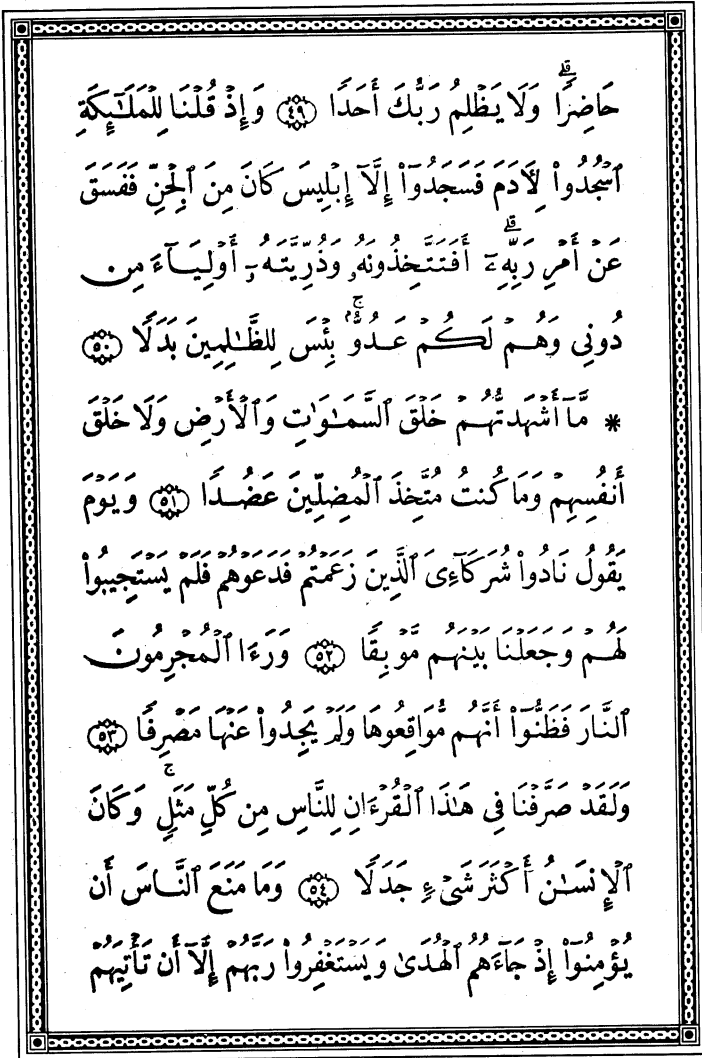 حَاضِرࣰاۗ وَلَا يَظۡلِمُ رَبُّكَ أَحَدࣰا ٤٩ وَإِذۡ قُلۡنَا لِلۡمَلَٰٓئِكَةِ
ٱسۡجُدُواْ لِأٓدَمَ فَسَجَدُوٓاْ إِلَّآ إِبۡلِيسَ كَانَ مِنَ ٱلۡجِنِّ فَفَسَقَ
عَنۡ أَمۡرِ رَبِّهِۦٓۗ أَفَتَتَّخِذُونَهُۥ وَذُرِّيَّتَهُۥٓ أَوۡلِيَآءَ مِن
دُونِي وَهُمۡ لَكُمۡ عَدُوُّۢۚ بِئۡسَ لِلظَّٰلِمِينَ بَدَلࣰا ٥٠
* مَّآ أَشۡهَدتُّهُمۡ خَلۡقَ ٱلسَّمَٰوَٰتِ وَٱلۡأَرۡضِ وَلَا خَلۡقَ
أَنفُسِهِمۡ وَمَا كُنتُ مُتَّخِذَ ٱلۡمُضِلِّينَ عَضُدࣰا ٥١ وَيَوۡمَ
يَقُولُ نَادُواْ شُرَكَآءِيَ ٱلَّذِينَ زَعَمۡتُمۡ فَدَعَوۡهُمۡ فَلَمۡ يَسۡتَجِيبُواْ
لَهُمۡ وَجَعَلۡنَا بَيۡنَهُم مَّوۡبِقࣰا ٥٢ وَرَءَا ٱلۡمُجۡرِمُونَ
ٱلنَّارَ فَظَنُّوٓاْ أَنَّهُم مُّوَاقِعُوهَا وَلَمۡ يَجِدُواْ عَنۡهَا مَصۡرِفࣰا ٥٣
وَلَقَدۡ صَرَّفۡنَا فِي هَٰذَا ٱلۡقُرۡءَانِ لِلنَّاسِ مِن كُلِّ مَثَلࣲۚ وَكَانَ
ٱلۡإِنسَٰنُ أَكۡثَرَ شَيۡءࣲ جَدَلࣰا ٥٤ وَمَا مَنَعَ ٱلنَّاسَ أَن
يُؤۡمِنُوٓاْ إِذۡ جَآءَهُمُ ٱلۡهُدَىٰ وَيَسۡتَغۡفِرُواْ رَبَّهُمۡ إِلَّآ أَن تَأۡتِيَهُمۡ